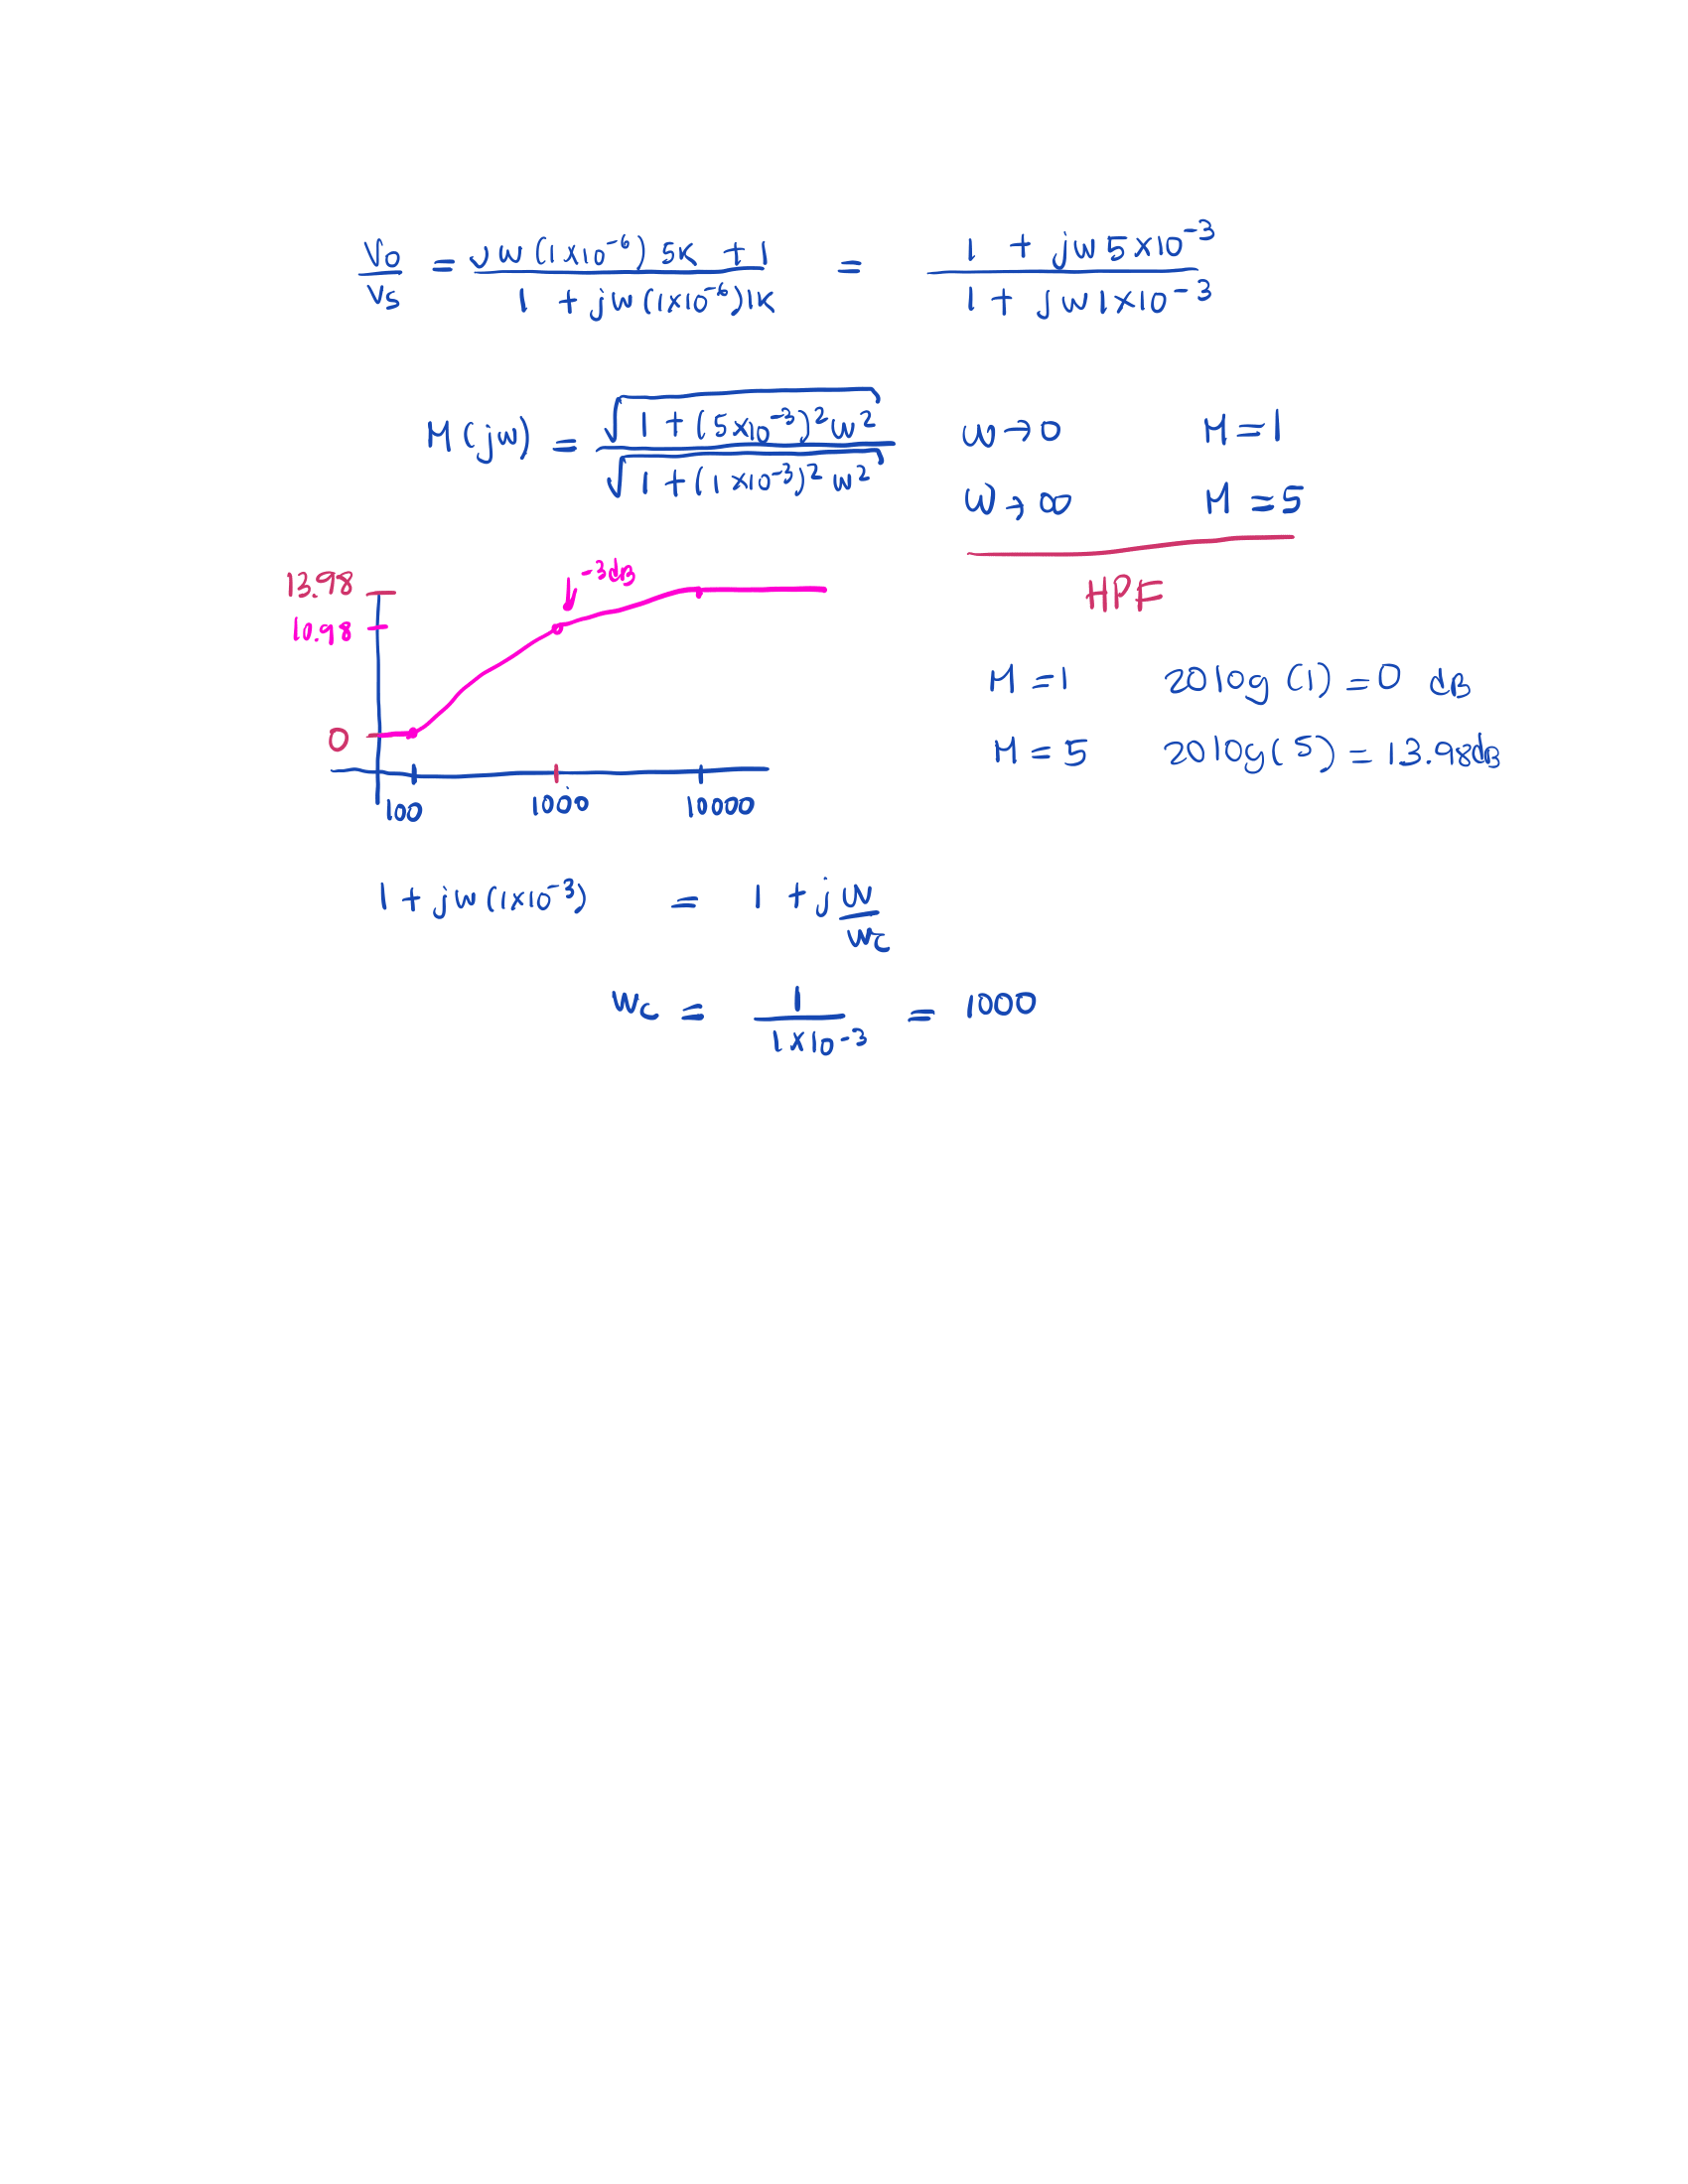 Vo/Vs = jw(1x10^-6) 5K + 1 / 1 + jw(1x10^-6)1K = 1 + jw5x10^-3 / 1 + jw1x10^-3
M(jw) = √1 + (5x10^-3)^2 w^2 / √1 + (1x10^-3)^2 w^2
w→0 M=1
w→∞ M=5
HPF
13.98
10.98
0
-3dB
100 1000 10000
M=1 20log(1)=0 dB
M=5 20log(5)=13.98dB
1 + jw(1x10^-3) = 1 + j w/wc
wc = 1 / 1x10^-3 = 1000